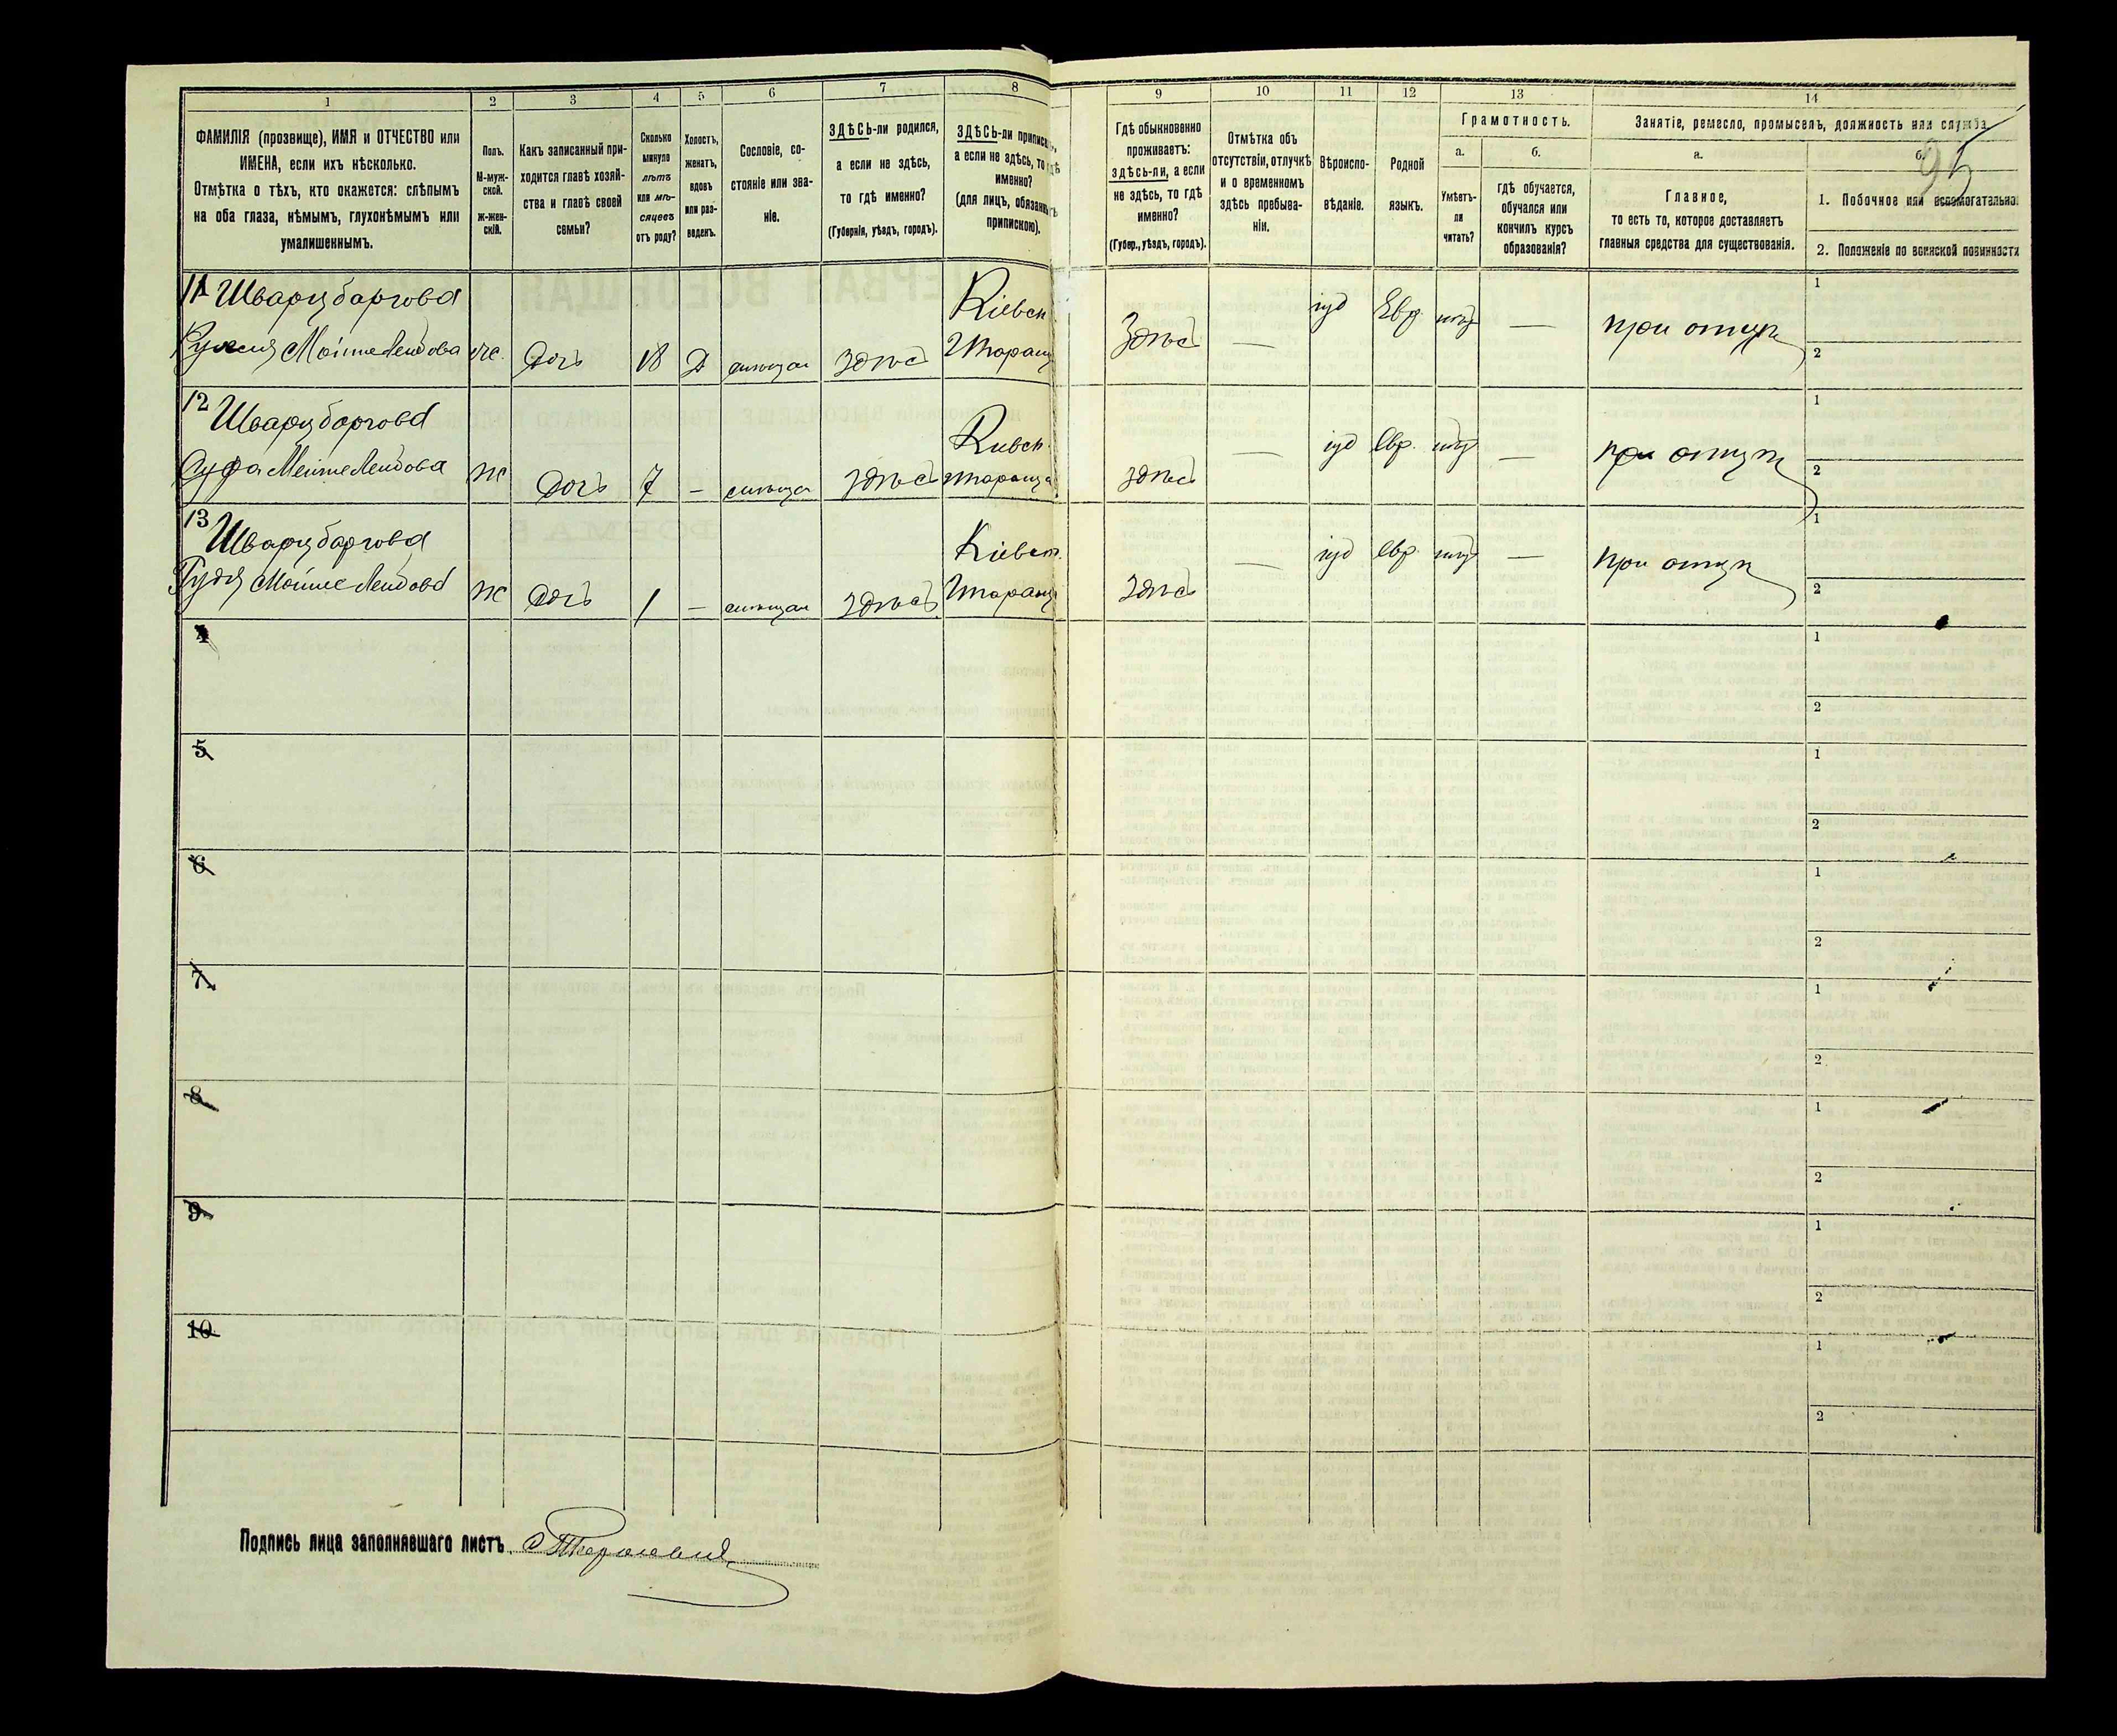 1
2
3
4
5
6
7
8
9
10
11
12
13
14
95
ФАМИЛІЯ (прозвище), ИМЯ и ОТЧЕСТВО или
ИМЕНА, если ихъ нѣсколько.
Отмѣтка о тѣхъ, кто окажется: слѣпымъ
на оба глаза, нѣмымъ, глухонѣмымъ или
умалишеннымъ.
Полъ.
М-муж-
ской.
ж-жен-
скій.
Какъ записанный при-
ходится главѣ хозяй-
ства и главѣ своей
семьи?
Сколько
минуло
лѣтъ
или мѣ-
сяцевъ
отъ роду?
Холостъ,
женатъ,
вдовъ
или раз-
веденъ.
Сословіе, со-
стояніе или зва-
ніе.
ЗДѢСЬ-ли родился,
а если не здѣсь,
то гдѣ именно?
(Губернія, уѣздъ, городъ).
ЗДѢСЬ-ли приписанъ,
а если не здѣсь, то гдѣ
именно?
(для лицъ, обязанныхъ
припискою).
Гдѣ обыкновенно
проживаетъ:
здѣсь-ли, а если
не здѣсь, то гдѣ
именно?
(Губер., уѣздъ, городъ).
Отмѣтка объ
отсутствіи, отлучкѣ
и о временномъ
здѣсь пребыва-
ніи.
Вѣроиспо-
вѣданіе.
Родной
языкъ.
Грамотность.
а.
Умѣетъ-
ли
читать?
б.
гдѣ обучается,
обучался или
кончилъ курсъ
образованія?
Занятіе, ремесло, промыселъ, должность или служба.
а.
Главное,
то есть то, которое доставляетъ
главныя средства для существованія.
б.
1. Побочное или вспомогательно
2. Положеніе по воинской повинности
11 Шварцбаргова
Мойше Лейдова
ж
Дочь
18
Д
здѣсь
Кіевск.
Таращ
Здѣсь
—
іуд
Евр.
нѣтъ
—
при отцѣ
1
2
12 Шварцбаргова
Мойше Лейдова
ж
Дочь
7
–
здѣсь
Киевск.
Тараща
здѣсь
—
іуд
Евр.
нѣтъ
—
при отцѣ
1
2
13 Шварцбаргова
Мойше Лейдова
ж
Дочь
1
–
здѣсь
Кіевск.
Таращ
здѣсь
—
іуд
Евр.
нѣтъ
—
при отцѣ
1
2
4
1
2
5
1
2
6
1
2
7
1
2
8
1
2
9
1
2
10
1
2
Подпись лица заполнявшаго листъ